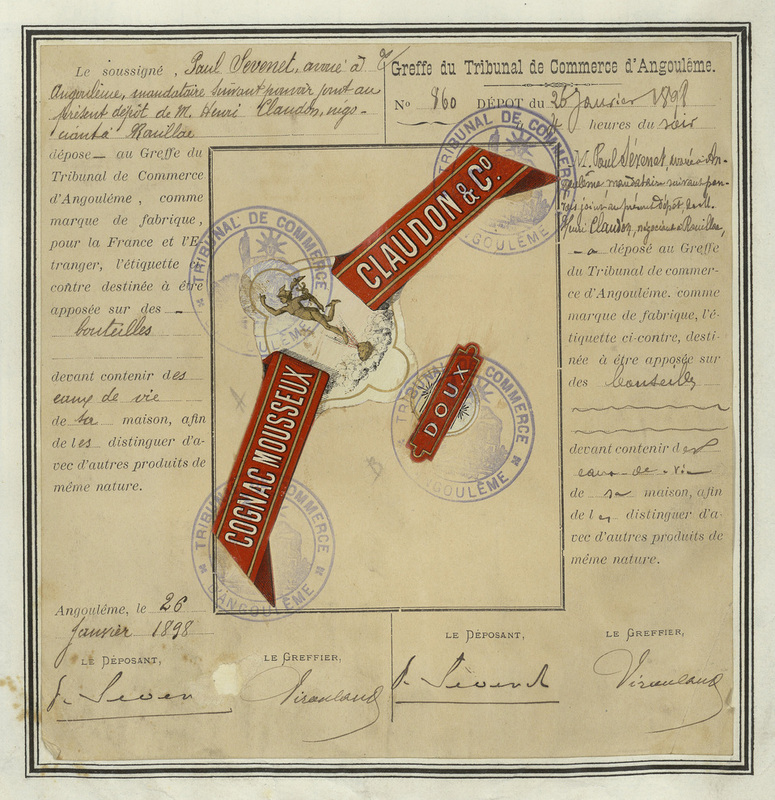 Le soussigné, Paul Sevenet, avoué à
Angoulême, mandataire suivant pouvoir joint au
présent dépôt de M. Henri Claudon, négo-
ciant à Rouillac
dépose au Greffe du
Tribunal de Commerce
d'Angoulême, comme
marque de fabrique,
pour la France et l'E
tranger, l'étiquette ci
contre destinée à être
apposée sur des
bouteilles
devant contenir des
eaux de vie
de sa maison, afin
de les distinguer d'a-
vec d'autres produits de
même nature.
Angoulême, le 26
Janvier 1898
LE DÉPOSANT,
LE GREFFIER,
P. Seven
Virauland
TRIBUNAL DE COMMERCE
D'ANGOULÊME
CLAUDON & Co
COGNAC MOUSSEUX
DOUX
TRIBUNAL DE COMMERCE
ANGOULÊME
TRIBUNAL DE COMMERCE
ANGOULÊME
TRIBUNAL DE COMMERCE
D'ANGOULÊME
A
B
Greffe du Tribunal de Commerce d'Angoulême.
No 860 DÉPÔT du 26 Janvier 1898
heures du soir
M. Paul Sévenet, avoué à An-
goulême mandataire suivant pou-
voir joint au présent dépôt, de M.
Henri Claudon, négociant à Rouillac,
a déposé au Greffe
du Tribunal de commer-
ce d'Angoulême. comme
marque de fabrique, l'é-
tiquette ci-contre, desti-
née à être apposée sur
des bouteilles
devant contenir des
eaux-de-vie
de sa maison, afin
de les distinguer d'a-
vec d'autres produits de
même nature.
LE DÉPOSANT,
LE GREFFIER,
P. Sévenet
Virauland